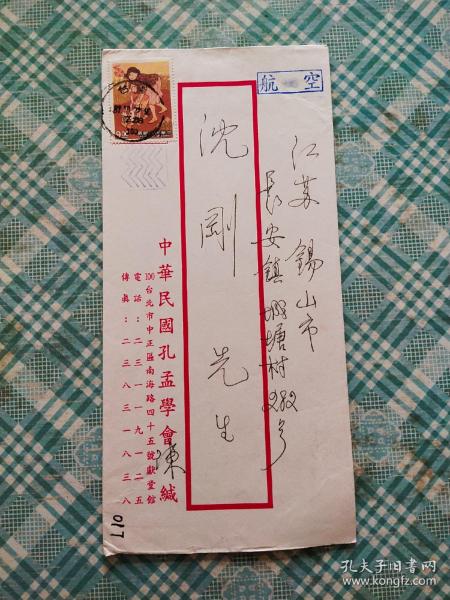 航空
江苏 锡山市
長安鎮
塘村
号
沈剛 先生
中華民國孔孟學會緘
陳
100台北市中正區南海路四十五號獻堂館
電話：二三一一九一二五
傳真：二三八三一八三八
017
孔夫子旧书网
www.kongfz.com